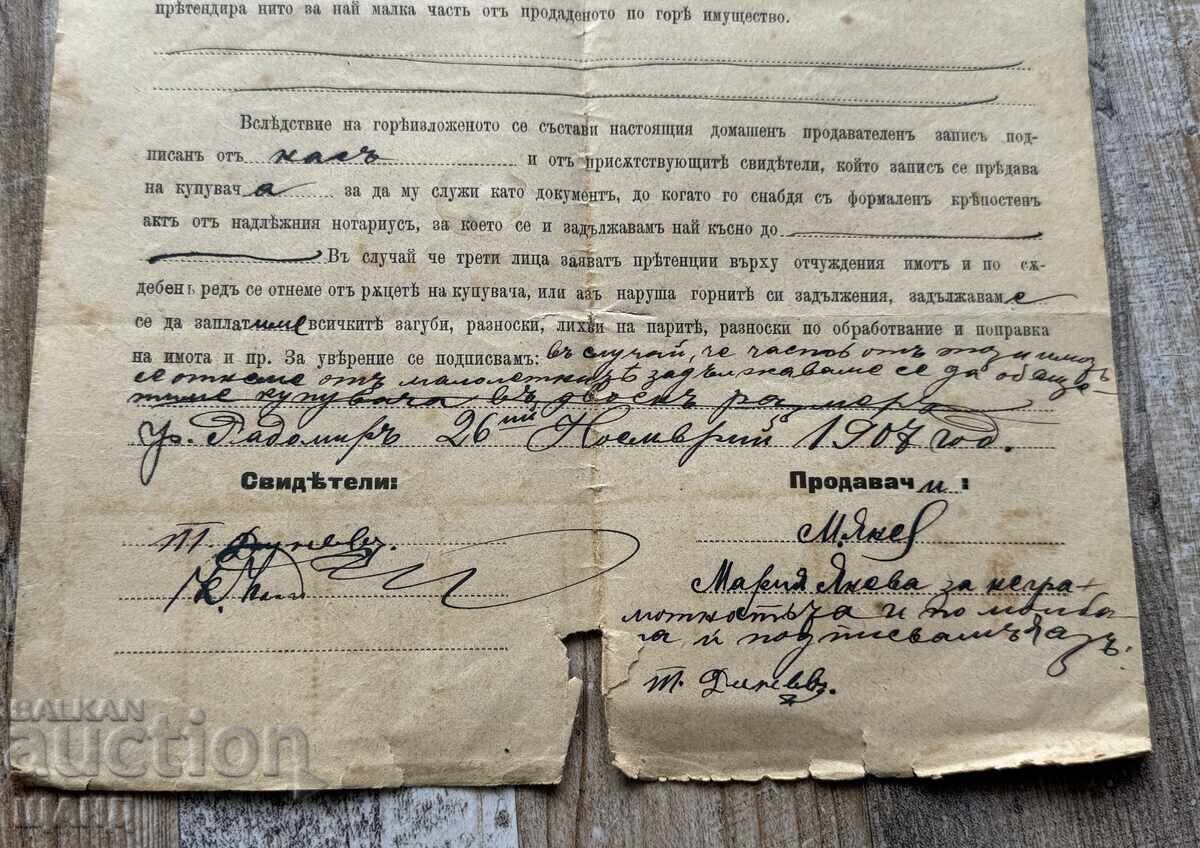 прѣтендира нито за най малка часть отъ продаденото по горѣ имущество.
Вслѣдствие на горѣизложеното се състави настоящия домашенъ продавателенъ записъ под-
писанъ отъ насъ и отъ присѫтствующитѣ свидѣтели, който записъ се прѣдава
на купувач а за да му служи като документъ, до когато го снабдя съ формаленъ крѣпостенъ
актъ отъ надлѣжния нотариусъ, за което се и задължавамъ най късно до
Въ случай че трети лица заяватъ прѣтенции върху отчуждения имотъ и по сѫ-
дебенъ редъ се отнеме отъ рѫцетѣ на купувача, или азъ наруша горнитѣ си задължения, задължавам е
се да заплатиме всичкитѣ загуби, разноски, лихви на паритѣ, разноски по обработвание и поправка
на имота и пр. За увѣрение се подписвамъ: въ случай, че частъ отъ този имотъ
се отнеме отъ малолетни задължаваме се да обеще-
тиме купувача въ двоенъ размеръ
гр. Радомиръ 26ий Ноемврий 1907 год.
Свидѣтели: Продавач и:
Т. Диневъ. М. Янев
Мария Янева за негра-
мотностьта и по молба-
та ѝ подписвамъ я азъ:
Т. Диневъ.
BALKAN
auction